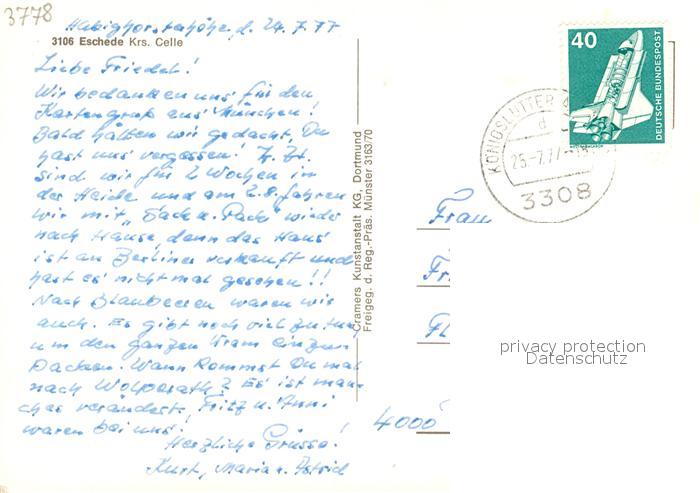 3778
Habighorsterhöhe, d. 24.7.77
3106 Eschede Krs. Celle
Liebe Friedel!
Wir bedanken uns für den
Kartengruß aus München!
Bald hätten wir gedacht, Du
hast uns vergessen! Z. Zt.
sind wir für 2 Wochen in
der Heide und am 2.8. fahren
wir mit „Sack u. Pack" wieder
nach Hause, denn das Haus
ist an Berliner verkauft und
hast es nicht mal gesehen!!
Nach Blaubeeren waren wir
auch. Es gibt noch viel zu tun,
um den ganzen Kram einzu-
packen. Wann kommst Du mal
nach Wolperath? Es ist man-
ches verändert. Fritz u. Anni
waren bei uns!
Herzliche Grüsse!
Kurt, Maria u. Astrid
Cramers Kunstanstalt KG, Dortmund
Freigeg. d. Reg.-Präs. Münster 3163/70
40
DEUTSCHE BUNDESPOST
KÖNIGSLUTTER
d
25.-7.77
3308
Frau
4000
privacy protection
Datenschutz